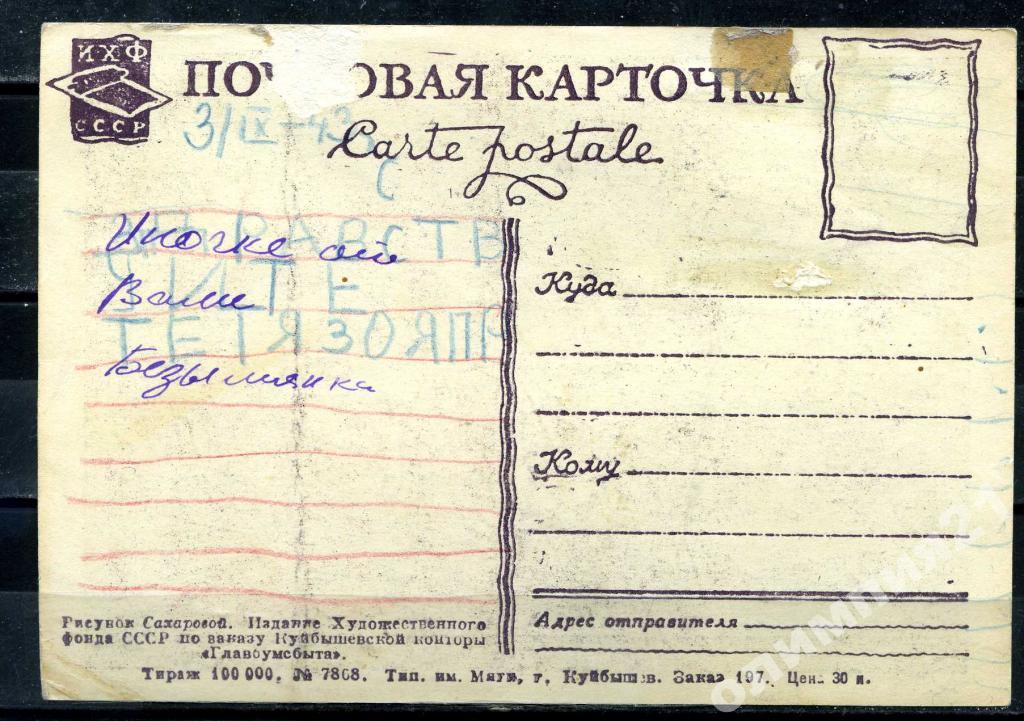 ИХФ
СССР
ПО ОВАЯ КАРТОЧКА
3/IX-43
Carte postale
С
ЗДРАВСТВ
УЙТЕ
ТЕТЯ ЗОЯ ПР
Иночке от
Вали
Безымянка
Куда
Кому
Адрес отправителя
Рисунок Сахаровой. Издание Художественного
фонда СССР по заказу Куйбышевской конторы
«Главбумсбыта».
Тираж 100 000. № 7868. Тип. им. Мяги, г. Куйбышев. Заказ 197. Цена 30 к.
олимпия21